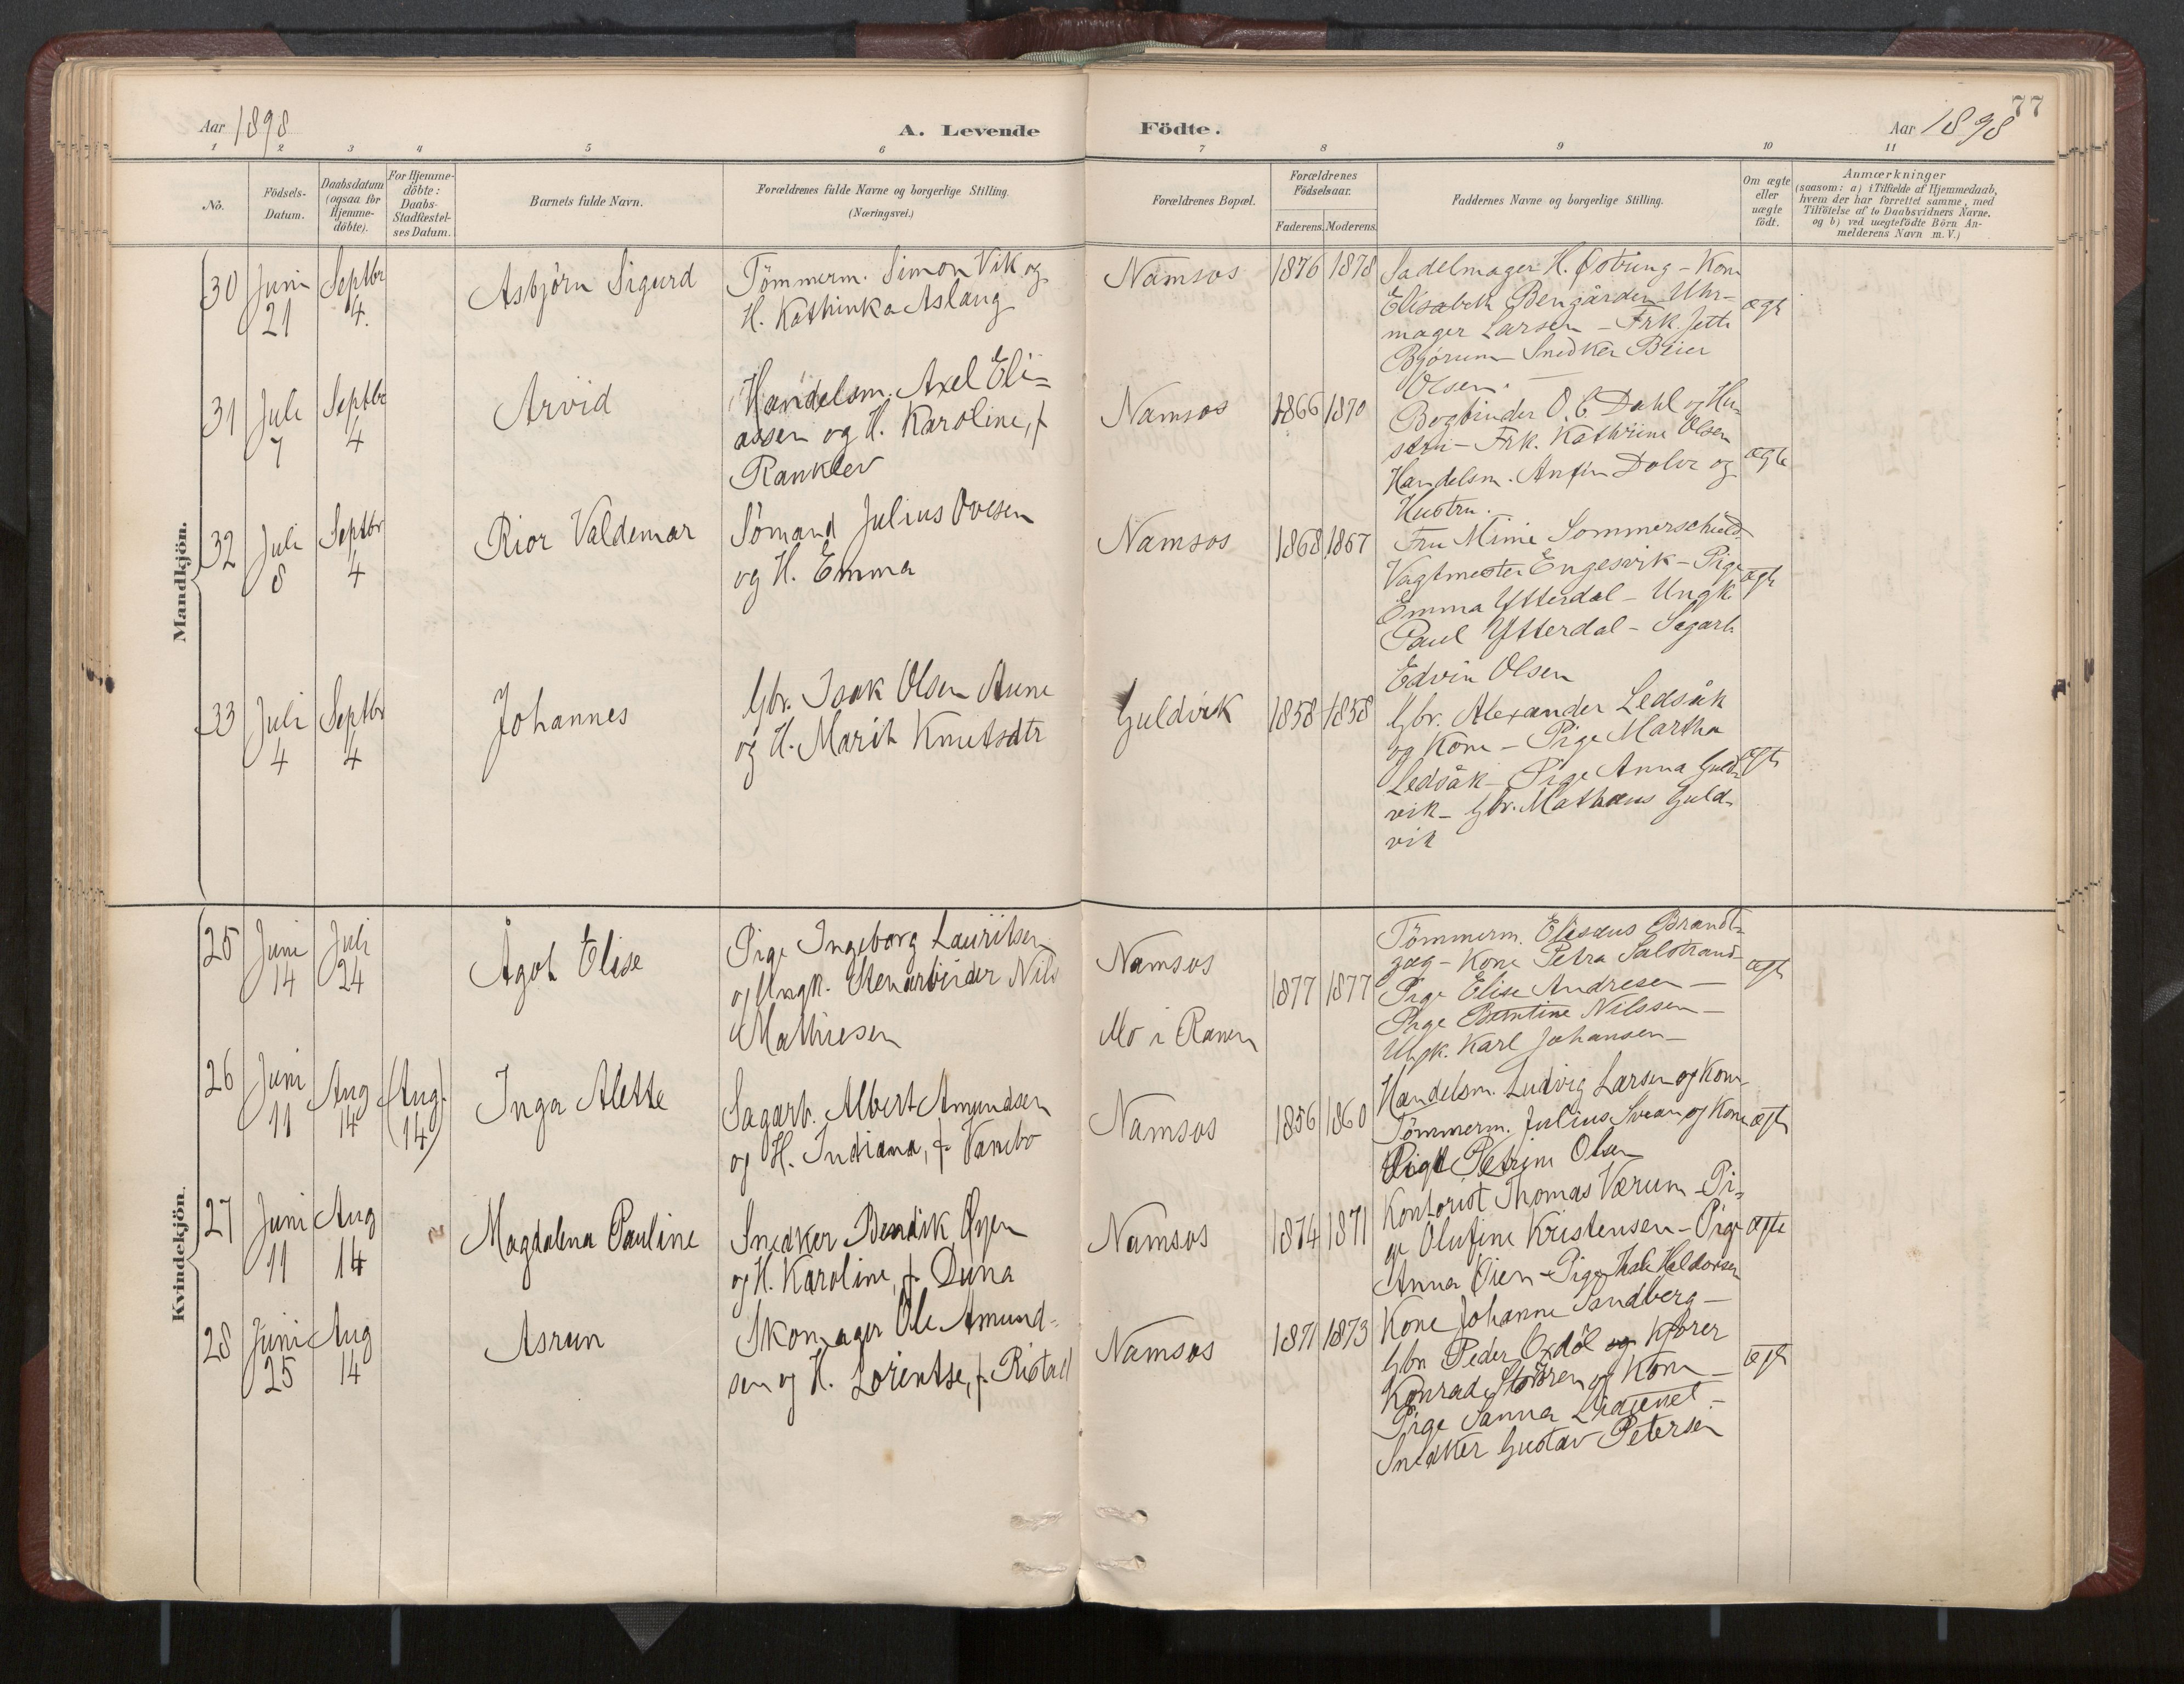 77
Aar 1898 A. Levende Födte. Aar 1898
1 2 3 4 5 6 7 8 9 10 11
No.
Födsels-
Datum.
Daabsdatum
(ogsaa for
Hjemme-
döbte).
For Hjemme-
döbte:
Daabs-
Stadfæstel-
ses Datum.
Barnets fulde Navn.
Forældrenes fulde Navne og borgerlige Stilling.
(Næringsvei.)
Forældrenes Bopæl.
Forældrenes
Födselsaar.
Faderens. Moderens.
Faddernes Navne og borgerlige Stilling.
Om ægte
eller
uægte
födt.
Anmærkninger
(saasom: a) i Tilfælde af Hjemmedaab,
hvem der har forrettet samme, med
Tilföielse af to Daabsvidners Navne,
og b) ved uægtefödte Börn An-
melderens Navn m. V.)
Mandkjön.
30
Juni
21
Septbr
4.
Asbjörn Sigurd
Tömmerm. Simon Vik og
H. Kathinka Aslaug
Namsos
1876 1878
Sadelmager H. - Kone
Elisabeth Bengården Uhr-
mager Larsen - Frk. Jette
Bjørum - Snedker Beier
Olsen. -
ægte
31
Juli
7
Septbr
4
Arvid
Handelsm. Axel Eli=
assen og H. Karoline, f
Ranklev
Namsos
1866 1870
Bogbinder O. C. Dahl og Hu-
stru - Frk. Kathrine Olsen
Handelsm. Anfin Dolve og
Hustru. -
ægte
32
Juli
8
Septbr
4
Rior Valdemar
Sömand Julius Ovesen
og H. Emma
Namsos
1868 1867
Fru Mimi Sommerschield
Vagtmester Engesvik - Pige
Emma Ytterdal - Ungk.
Paul Ytterdal - Sagarb.
Edvin Olsen
ægte
33
Juli
4
Septbr
4
Johannes
Gbr. Isak Olsen Aune
og H. Marit Knutsdtr
Guldvik
1858 1858
Gbr. Alexander Ledsåk
og Kone - Pige Martha
Ledsåk - Pige Anna Guld-
vik - Gbr. Mathæus Guld-
vik
ægte
Kvindekjön.
25
Juni
14
Juli
24
Ågot Elise
Pige Ingeborg Lauritsen
og Ungk. Stenarbeider Nils
Mathiesen
Namsos
Mo i Ranen
1877 1877
Tömmerm. Elisæus Brandt-
zæg - Kone Petra Salstrand -
Pige Elise Andresen -
Pige Bentine Nilssen -
Ungk. Karl Johansen -
ægte
26
Juni
11
Aug
14
(Aug.
14)
Inga Alette
Sagarb. Albert Amundsen
og H. Indiana, f. Vanebo
Namsos
1856 1860
Handelsm. Ludvig Larsen og Kone
Tömmerm. Julius Svean og Kone
Pige Petrine Olsen
ægte
27
Juni
11
Aug
14
Magdalena Pauline
Snedker Bendik Øyen
og H. Karoline, f. Duna
Namsos
1874 1871
Kontorist Thomas Værum - Pi-
ge Olufine Kristensen - Pige
Anna Øien - Pige Haldorsen
ægte
28
Juni
25
Aug
14
Asrun
Skomager Ole Amund-
sen og H. Lorentse, f. Ristad
Namsos
1871 1873
Kone Johanne Sandberg -
Gbr. Peder Oxdöl og Kjörer
Konrad Stören og Kone -
Pige Sanna -
Snedker Gustav Petersen
ægte